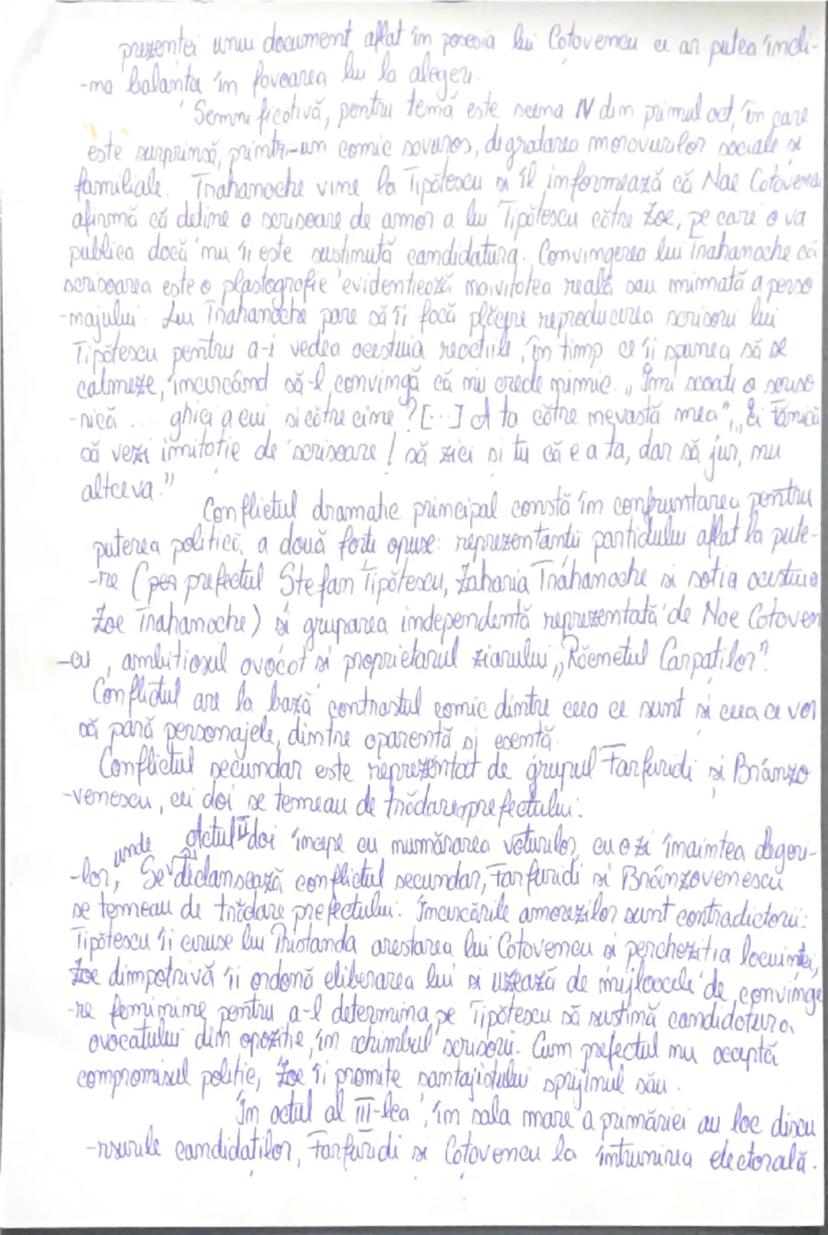 prezenței unui document aflat în posesia lui Cotovencu ce ar putea încli-
-na balanța în favoarea lui la alegeri.
Semnificativă, pentru temă este scena IV din primul act, în care
este surprinsă, printr-un comic savuros, degradarea moravurilor sociale și
familiale. Trahanache vine la Tipătescu și îl informează că Nae Cotovencu
afirmă că deține o scrisoare de amor a lui Tipătescu către Zoe, pe care o va
publica dacă nu îi este susținută candidatura. Convingerea lui Trahanache că
scrisoarea este o plastografie evidențiează naivitatea reală sau mimată a perso
-najului. Lui Trahanache pare să îi facă plăcere reproducerea scrisorii lui
Tipătescu pentru a-i vedea acestuia reacțiile, în timp ce îi spunea să se
calmeze, încercând să-l convingă că nu crede nimic. „Îmi scoate o scriso
-rică ... ghici a cui și către cine? [...] A ta către nevastă mea", „Ei Fănică
să vezi imitație de scrisoare! să zici și tu că e a ta, dar să juri, nu
altceva."
Conflictul dramatic principal constă în confruntarea pentru
puterea politică, a două forțe opuse: reprezentanții partidului aflat la pute-
-re (prefectul Ștefan Tipătescu, Zaharia Trahanache și soția acestuia
Zoe Trahanache) și gruparea independentă reprezentată de Nae Cotoven
-cu, ambițiosul avocat și proprietarul ziarului „Răcnetul Carpaților".
Conflictul are la bază contrastul comic dintre ceea ce sunt și ceea ce vor
să pară personajele, dintre aparență și esență.
Conflictul secundar este reprezentat de grupul Farfuridi și Brânzo
-venescu, cei doi se temeau de trădarea prefectului.
Actul II doi începe cu numărarea voturilor, cu o zi înaintea alegeri-
-lor, unde Se declansează conflictul secundar, Farfuridi și Brânzovenescu
se temeau de trădare prefectului. Încercările amorezilor sunt contradictorii:
Tipătescu îi ceruse lui Pristanda arestarea lui Cotovencu și percheziția locuinței,
Zoe dimpotrivă îi ordonă eliberarea lui și uzează de mijloacele de convinge
-re feminine pentru a-l determina pe Tipătescu să susțină candidatura
avocatului din opoziție, în schimbul scrisorii. Cum prefectul nu acceptă
compromisul politic, Zoe îi promite șantajistului sprijinul său.
În actul al III-lea, în sala mare a primăriei au loc discu
-rsurile candidaților, Farfuridi și Cotovencu la întrunirea electorală.